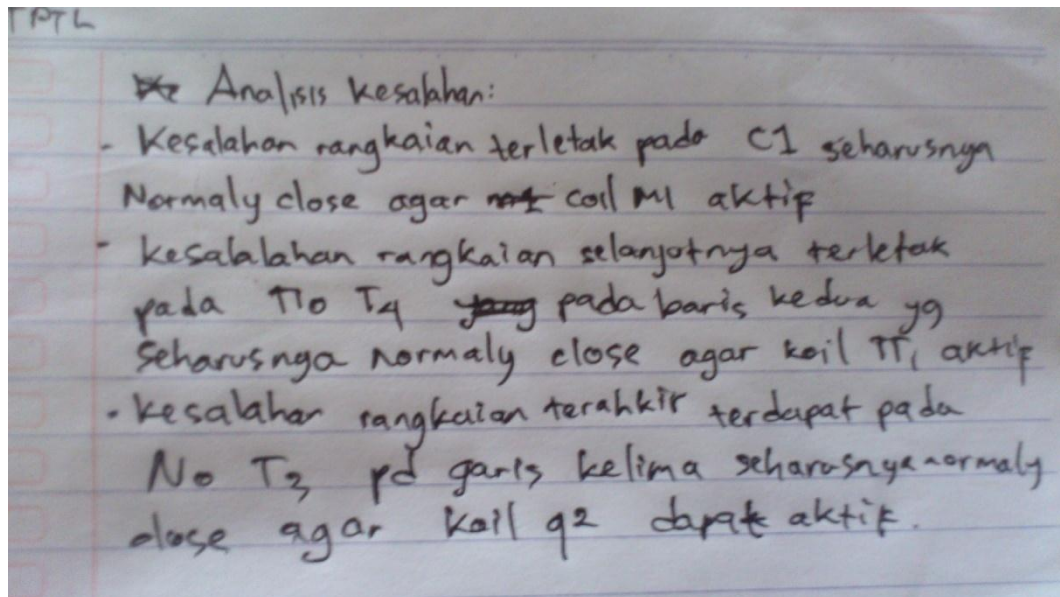 TPTL
Analisis kesalahan:
- Kesalahan rangkaian terletak pada C1 seharusnya
Normaly close agar coil M1 aktif
- kesalalahan rangkaian selanjotnya terletak
pada No T4 pada baris kedua yg
seharusnya normaly close agar koil TT1 aktif
- kesalahan rangkaian terahkir terdapat pada
No T3 pd garis kelima seharusnya normaly
close agar koil q2 dapat aktif.